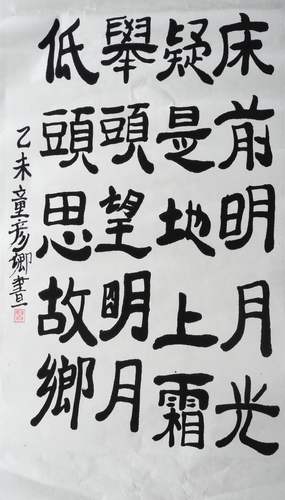 床前明月光
疑是地上霜
舉頭望明月
低頭思故鄉
乙未童彦卿書